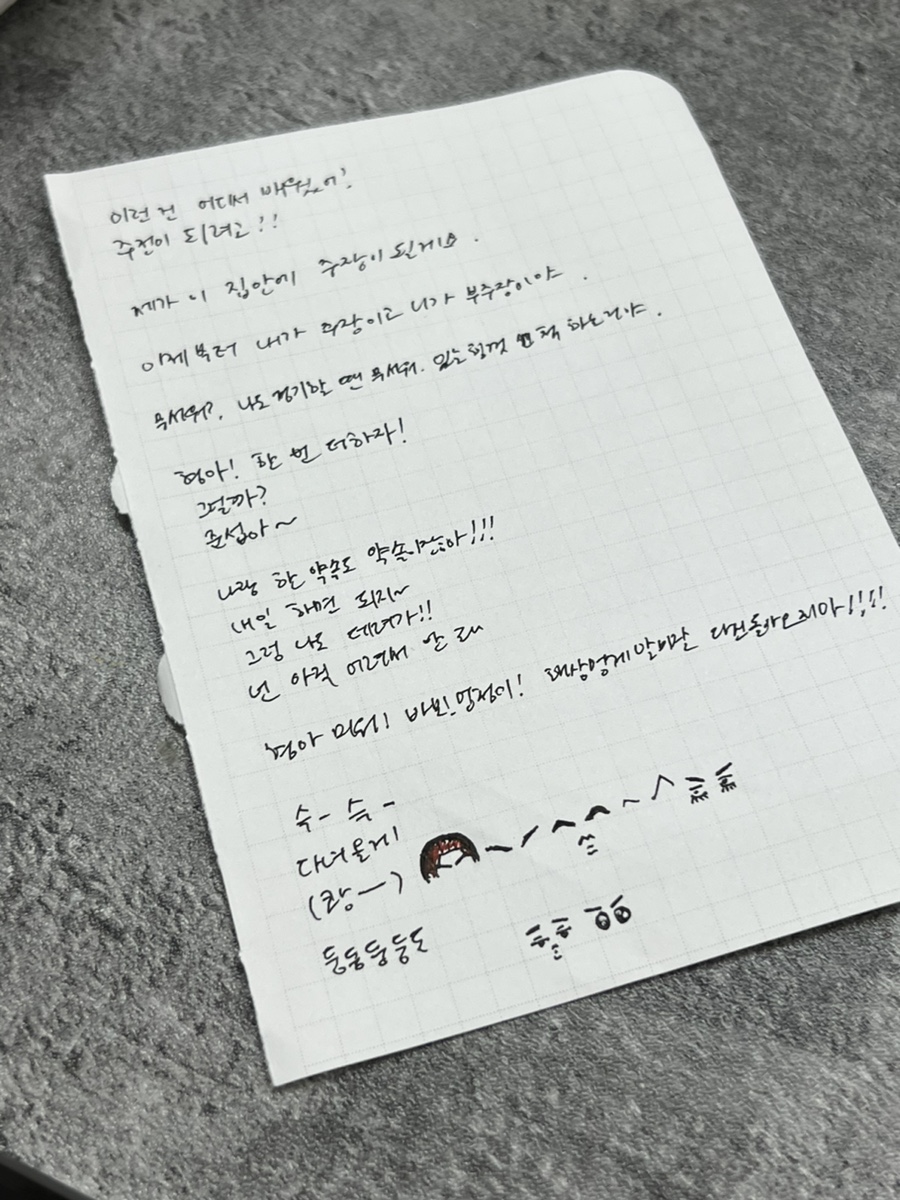 이런 건 어디서 배웠어?
주전이 되려고!!
제가 이 집안에 주장이 될게요.
이제부터 내가 주장이고 니가 부주장이야.
무서워?, 나도 경기할 땐 무서워. 있는 힘껏 센 척 하는거야.
형아! 한 번 더하자!
그럴까?
준섭아~
나랑 한 약속도 약속이잖아!!!
내일 하면 되지~
그럼 나도 데려가!!
넌 아직 어려서 안 돼
형아 미워! 바보 멍청이!
돌아오지마!!!!
슉- 슉-
다녀올게
(쾅一)
둥둥둥둥도